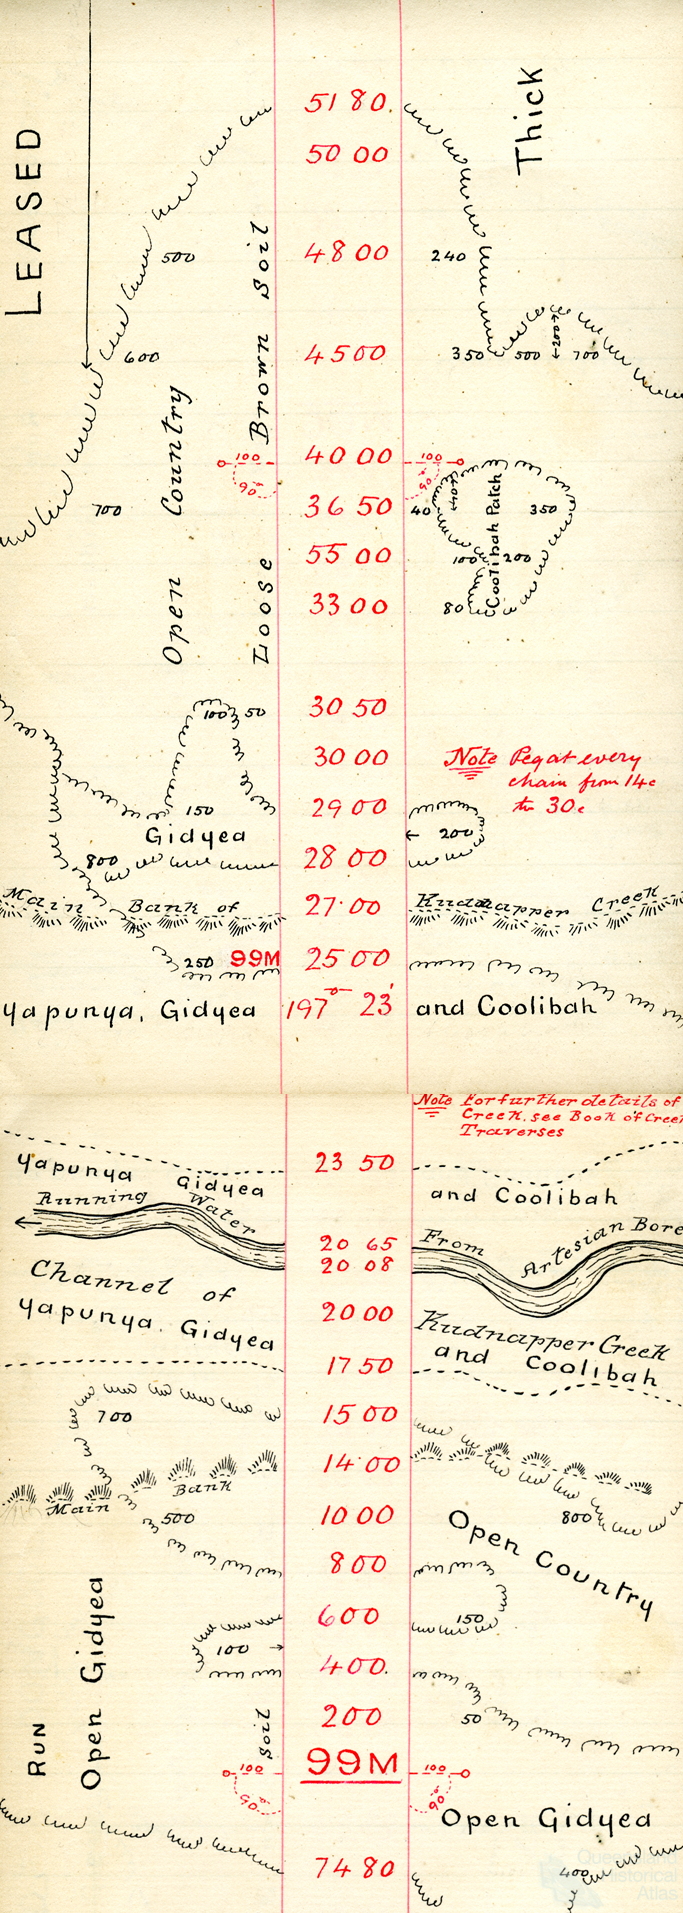 LEASED
Thick
51 80.
50 00
500
48 00
240
600
45 00
350
500
200
700
Open Country
Loose Brown Soil
100
40 00
100
90°
90°
700
36 50
40
40
Coolibah Patch
350
55 00
100
200
33 00
80
100
50
30 50
30 00
Note Peg at every
chain from 14c
to 30c
150
29 00
200
Gidyea
800
28 00
Main Bank of
27.00
Kudnapper Creek
250
99M
25 00
Yapunya, Gidyea
197° 23'
and Coolibah
Note For further details of
Creek, see Book of Creek
Traverses
23 50
Yapunya Gidyea
and Coolibah
Running Water
20 65
From Artesian Bore
20 08
Channel of
20 00
Kudnapper Creek
Yapunya, Gidyea
and Coolibah
17 50
700
15 00
14.00
Main Bank
500
10 00
800
Open Country
800
600
150
100
400.
200
50
RUN
Open Gidyea
Soil
99M
100
100
90°
90°
Open Gidyea
74 80
400
Queensland
Historical
Atlas